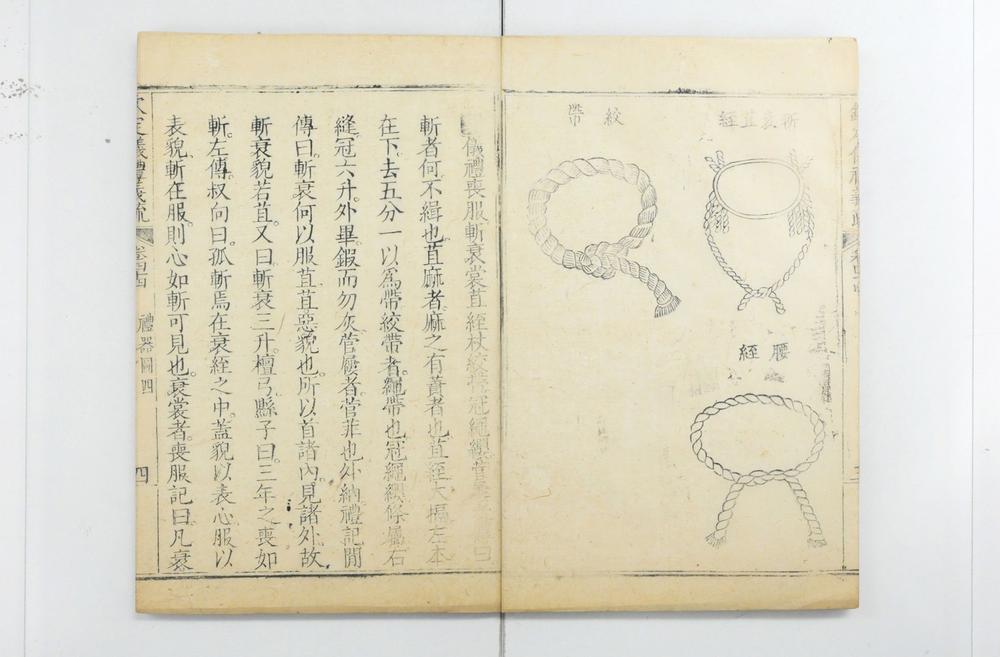 斬衰苴絰
腰絰
絞帶
儀禮喪服斬衰裳苴絰杖絞帶冠繩纓菅曰
斬者何不緝也。苴麻者麻之有蕡者也苴絰大搹左本
在下。去五分一以爲帶絞帶者。繩帶也。冠繩纓條屬右
縫。冠六升。外畢鍛而勿灰。菅屨者菅菲也外納禮記閒
傳曰。斬衰何以服苴。苴惡貌也。所以首諸內。見諸外。故
斬衰貌若苴。又曰。斬衰三升。檀弓縣子曰。三年之喪如
斬。左傳叔向曰。孤斬焉在衰絰之中。蓋貌以表心。服以
表貌。斬在服。則心如斬可見也。衰裳者。喪服記曰。凡衰
欽定儀禮義疏 卷四十四 禮器圖四 四